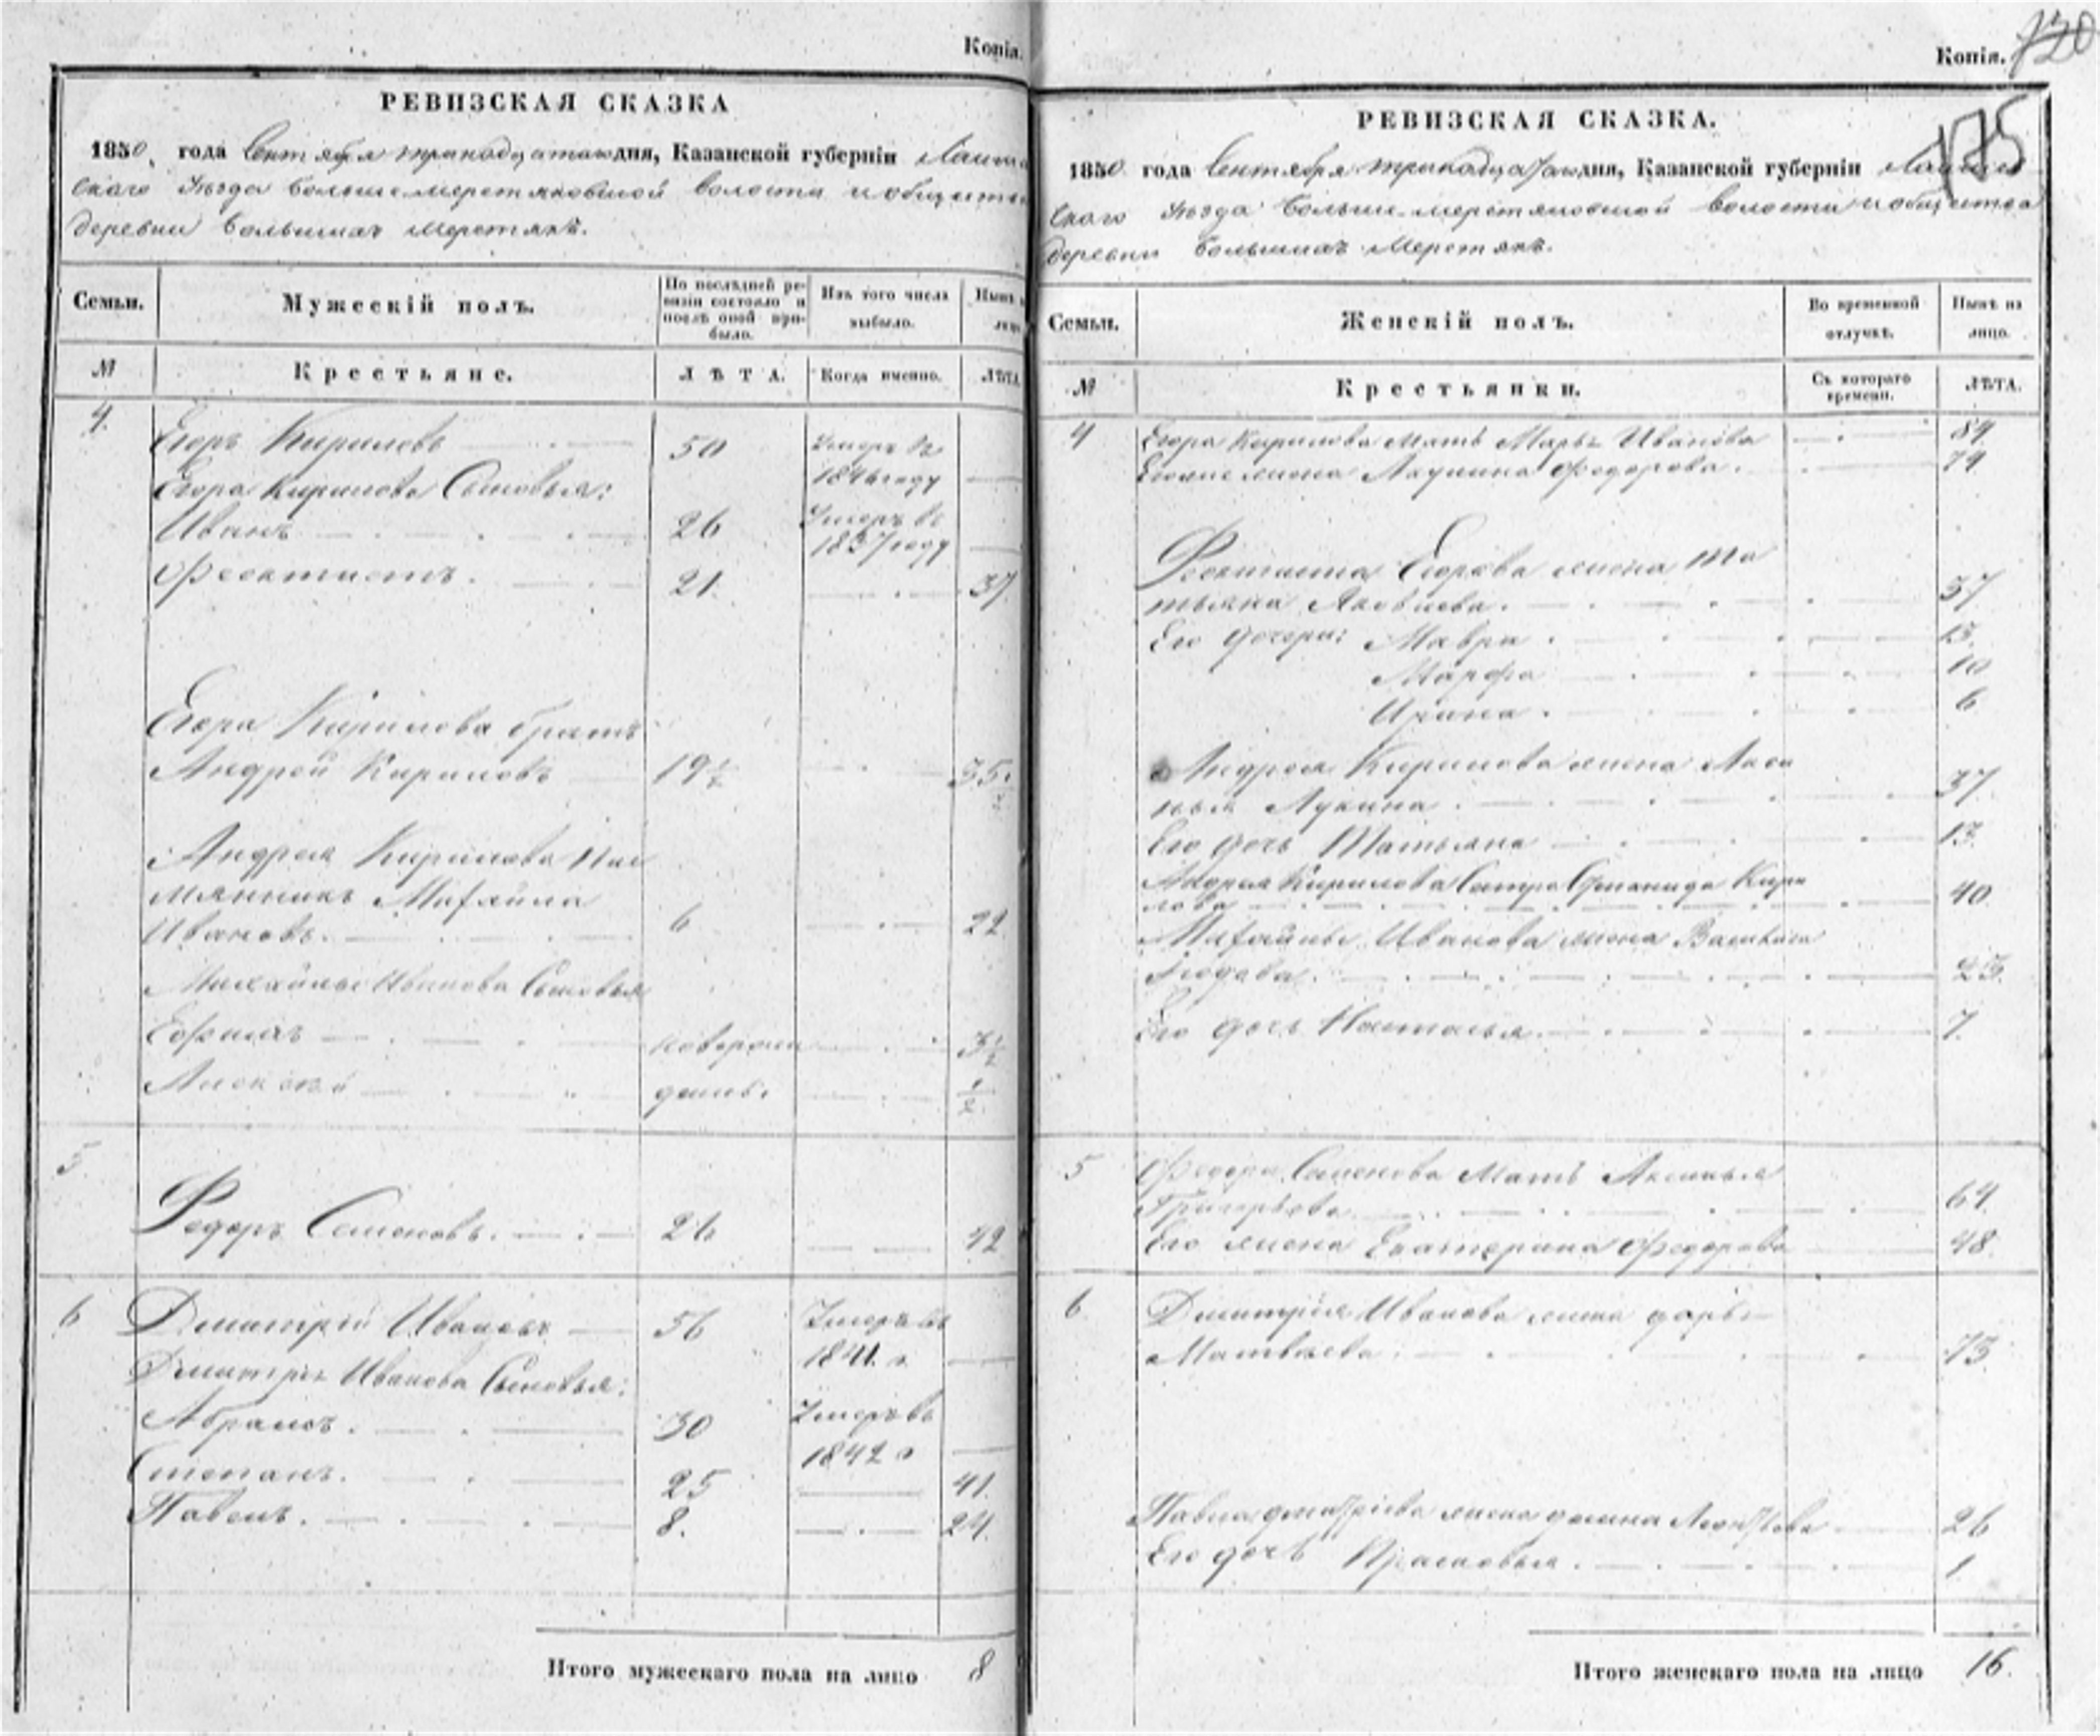 Копія.
РЕВИЗСКАЯ СКАЗКА
1850 года Сентября тринадцатаго дня, Казанской губерніи Лаише
скаго уѣзда Большемеретяковской волости и общества
деревни Большихъ Меретякъ.
Семьи.
Мужескій полъ.
По послѣдней ре-
визіи состояло и
послѣ оной при-
было.
Изъ того числа
выбыло.
Нынѣ на
лицо.
№
Крестьяне.
ЛѢТА.
Когда именно.
ЛѢТА.
4.
Егоръ Кириловъ 50 Умеръ въ
1846 году
Егора Кирилова Сыновья:
Иванъ 26 Умеръ въ
1837 году
Феоктистъ. 21. 37.
Егора Кирилова братъ
Андрей Кириловъ 19½ 35½
Андрея Кирилова пле
мянникъ Михайла
Ивановъ. 6 22
Михайлы Иванова Сыновья
Ефимъ новорож 3½
Алексѣй денъ. ½
5
Федоръ Семеновъ. 26 42
6
Дмитрій Ивановъ 56 Умеръ въ
1841 г.
Дмитрія Иванова Сыновья:
Абрамъ. 30 Умеръ въ
1842 г
Степанъ. 25 41.
Павелъ. 8. 24.
Итого мужескаго пола на лицо 8
Копія.
720
175
РЕВИЗСКАЯ СКАЗКА.
1850 года Сентября тринадцатаго дня, Казанской губерніи Лаише
скаго уѣзда Большемеретяковской волости и общества
деревни Большихъ Меретякъ.
Семьи.
Женскій полъ.
Во временной
отлучкѣ.
Нынѣ на
лицо.
№
Крестьянки.
Съ котораго
времени.
ЛѢТА.
4
Егора Кирилова мать Марья Иванова 84.
Его же жена Акулина Федорова. 74.
Феоктиста Егорова жена Та
тьяна Яковлева. 37
Его дочери: Мавра. 13.
Марфа 10
Ирина. 6
Андрея Кирилова жена
Лукина. 37
Его дочь Татьяна 13.
Андрея Кирилова Сестра Кири
лова 40
Михайлы Иванова жена Василиса
23.
Его дочь Наталья. 7.
5
Федора Семенова мать Аксинья
Григорьева. 64.
Его жена Екатерина Федорова 48.
6
Дмитрія Иванова жена Дарья
Матвѣева. 73.
Павла Дмитріева жена Леонтьева 26
Его дочь Прасковья. 1
Итого женскаго пола на лицо 16.